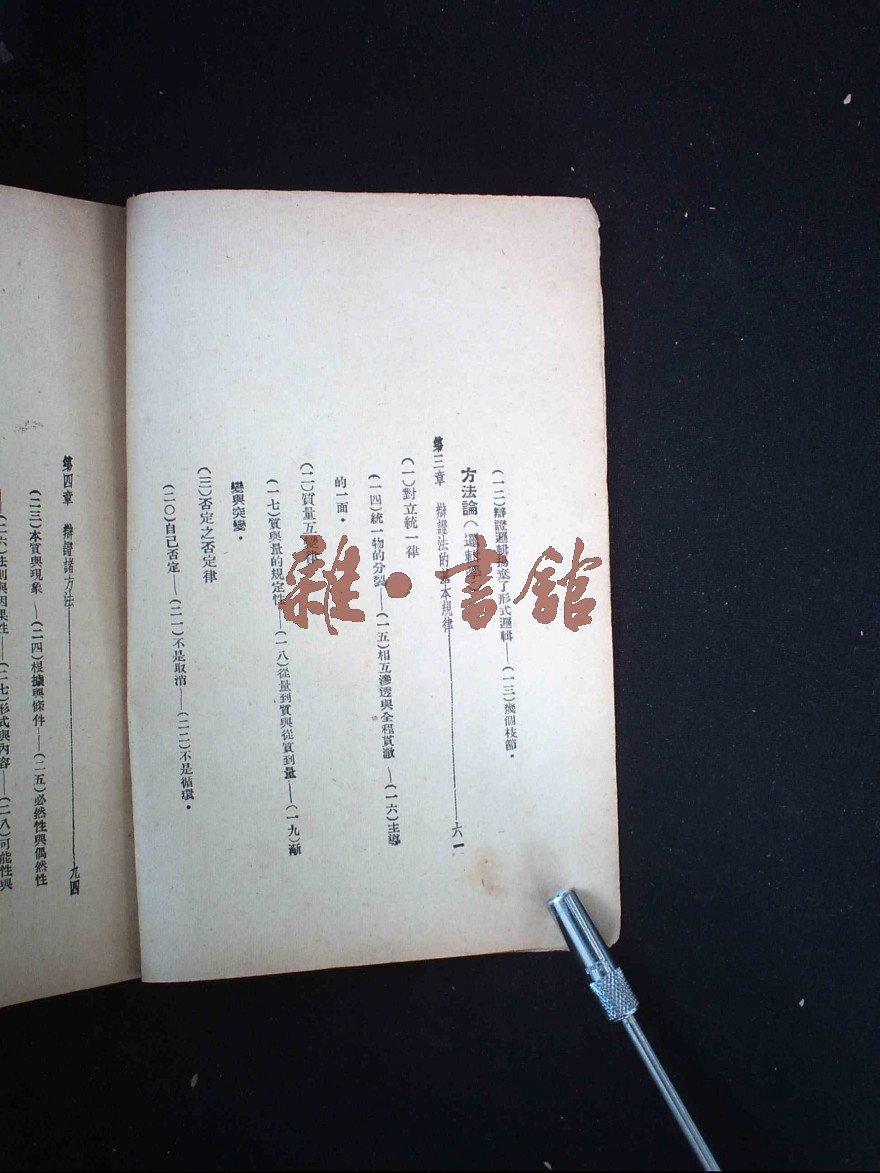 (一二)辯證邏輯揚棄了形式邏輯——(一三)幾個枝節．
方法論(邏輯
第三章 辯證法的基本規律——六一
(一)對立統一律
(一四)統一物的分裂——(一五)相互滲透與全程貫澈——(一六)主導
的一面．
(二)質量互變律
(一七)質與量的規定性——(一八)從量到質與從質到量——(一九)漸
變與突變．
(三)否定之否定律
(二〇)自己否定——(二一)不是取消——(二二)不是循環．
第四章 辯證諸方法——九四
(二三)本質與現象——(二四)根據與條件——(二五)必然性與偶然性
(二六)法則與因果性——(二七)形式與內容——(二八)可能性與
雜·書館